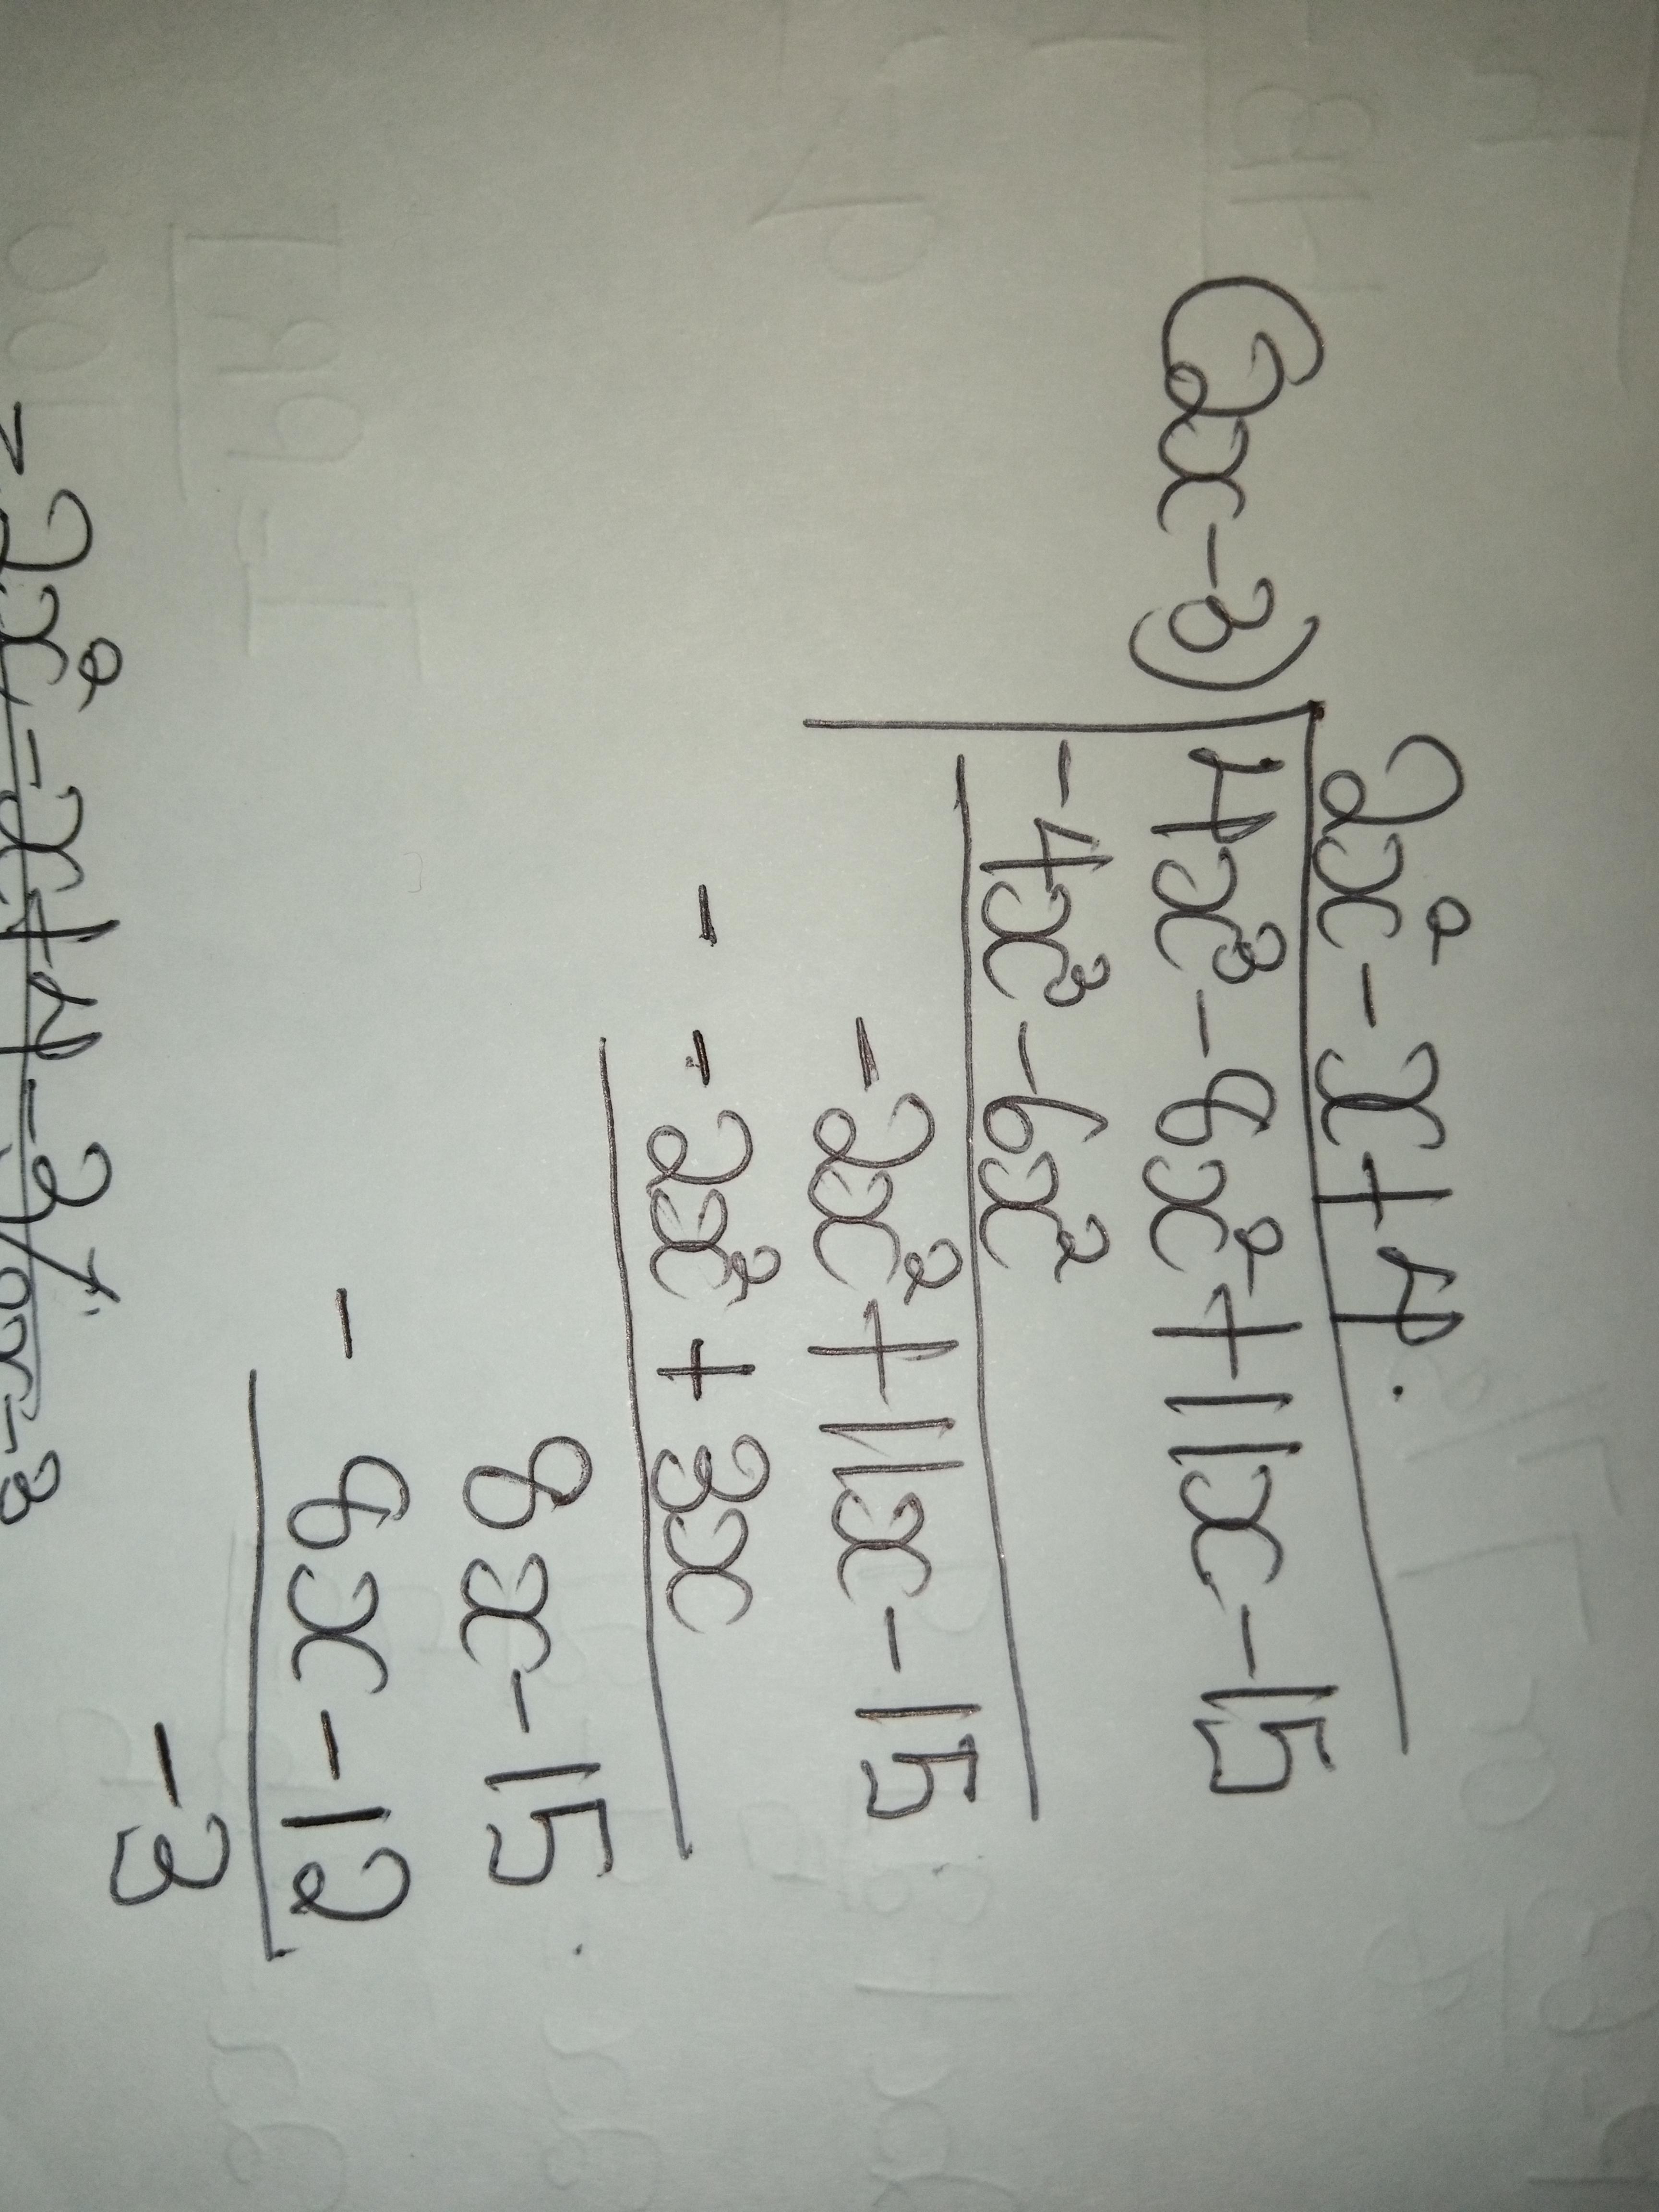 2x² - x + 4.
(2x - 3) 4x³ - 8x² + 11x - 15
- 4x³ - 6x²
- 2x² + 11x - 15
- - 2x² + 3x
8x - 15
- 8x - 12
- 3
= 2x² - x + 4 - 3/2x - 3